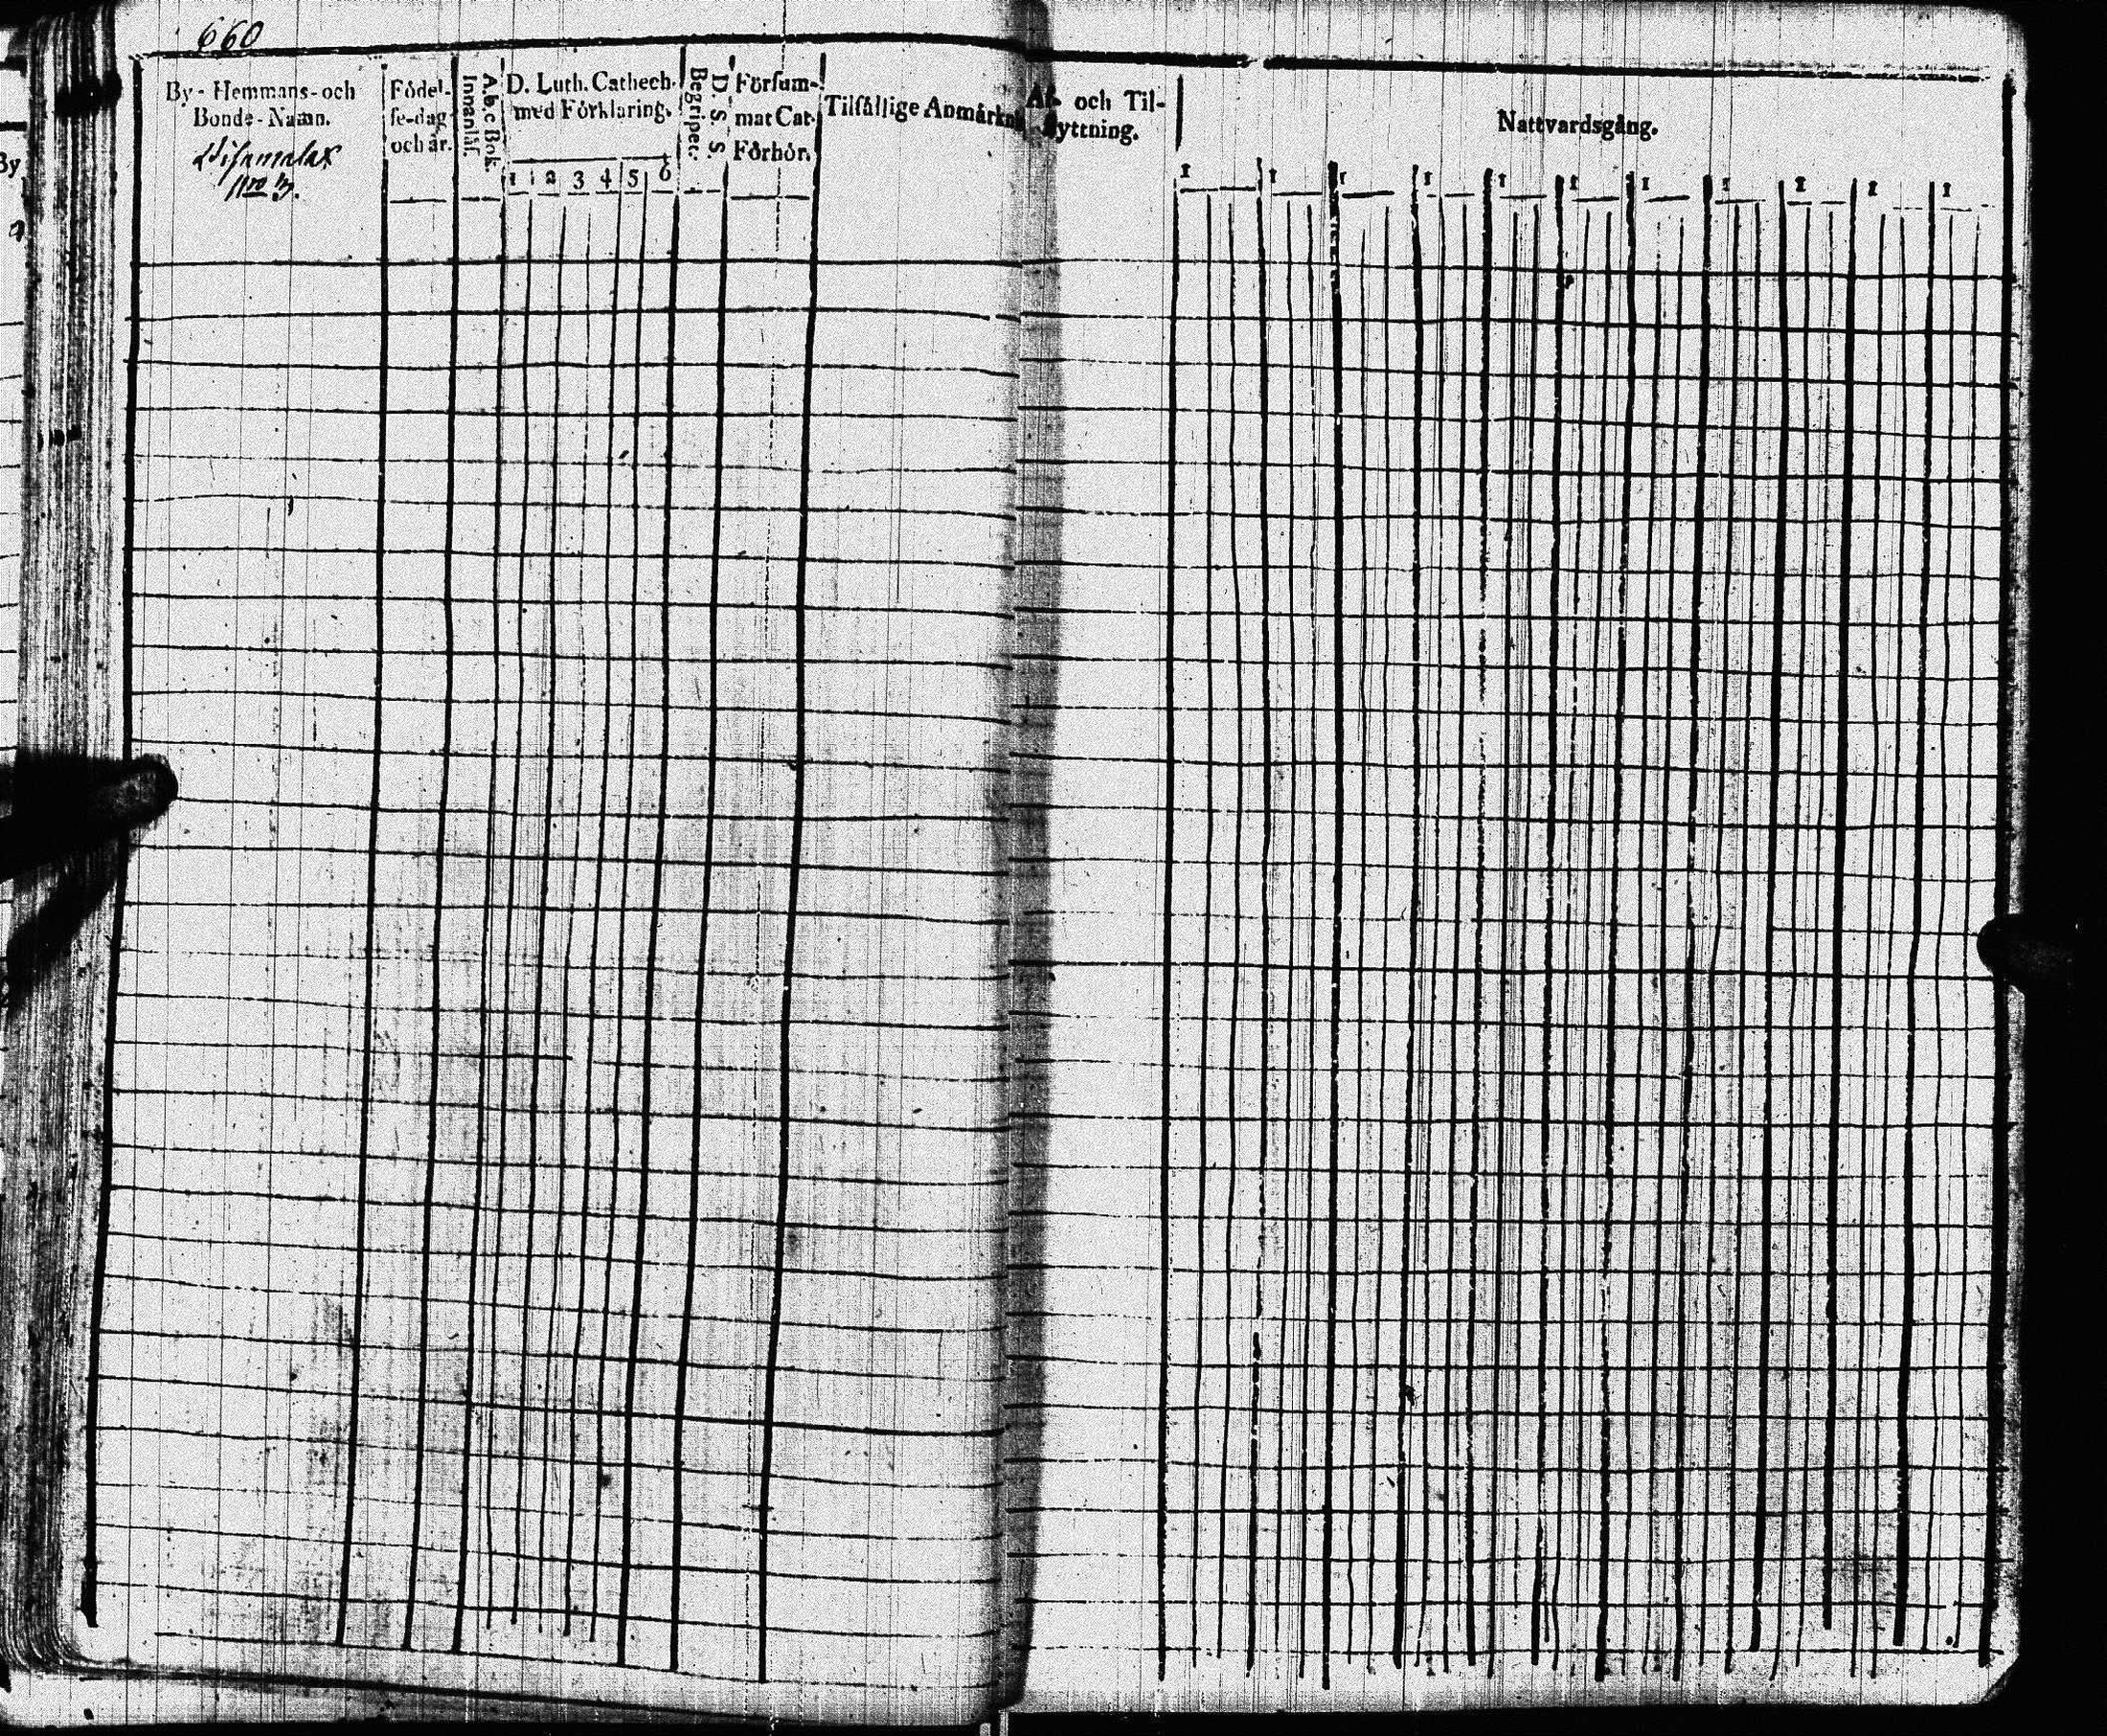 660
By-Hemmans-och
Bonde-Namn.
Födel-
se-dag
och år.
A.b.c Bok.
Innanläs.
D. Luth. Cathech.
med Förklaring.
1 2 3 4 5 6
D. S. S.
Begriper.
Försum-
mat Cat.
Förhör.
Tilfällige Anmärkn
Af- och Til-
flyttning.
Nattvardsgång.
1 1 1 1 1 1 1 1 1 1 1
By